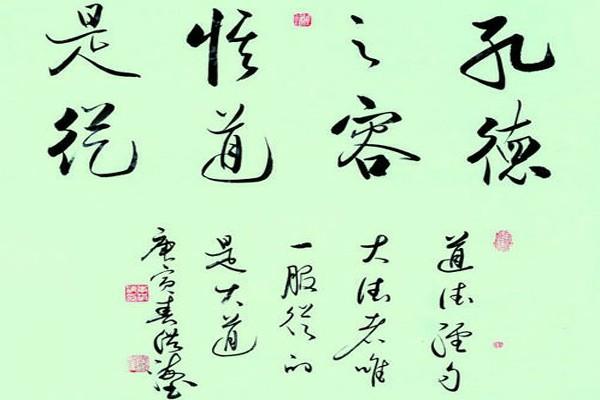 孔德
之容
惟道
是從
道德經句
大德者唯
一服從的
是大道
庚寅春洪